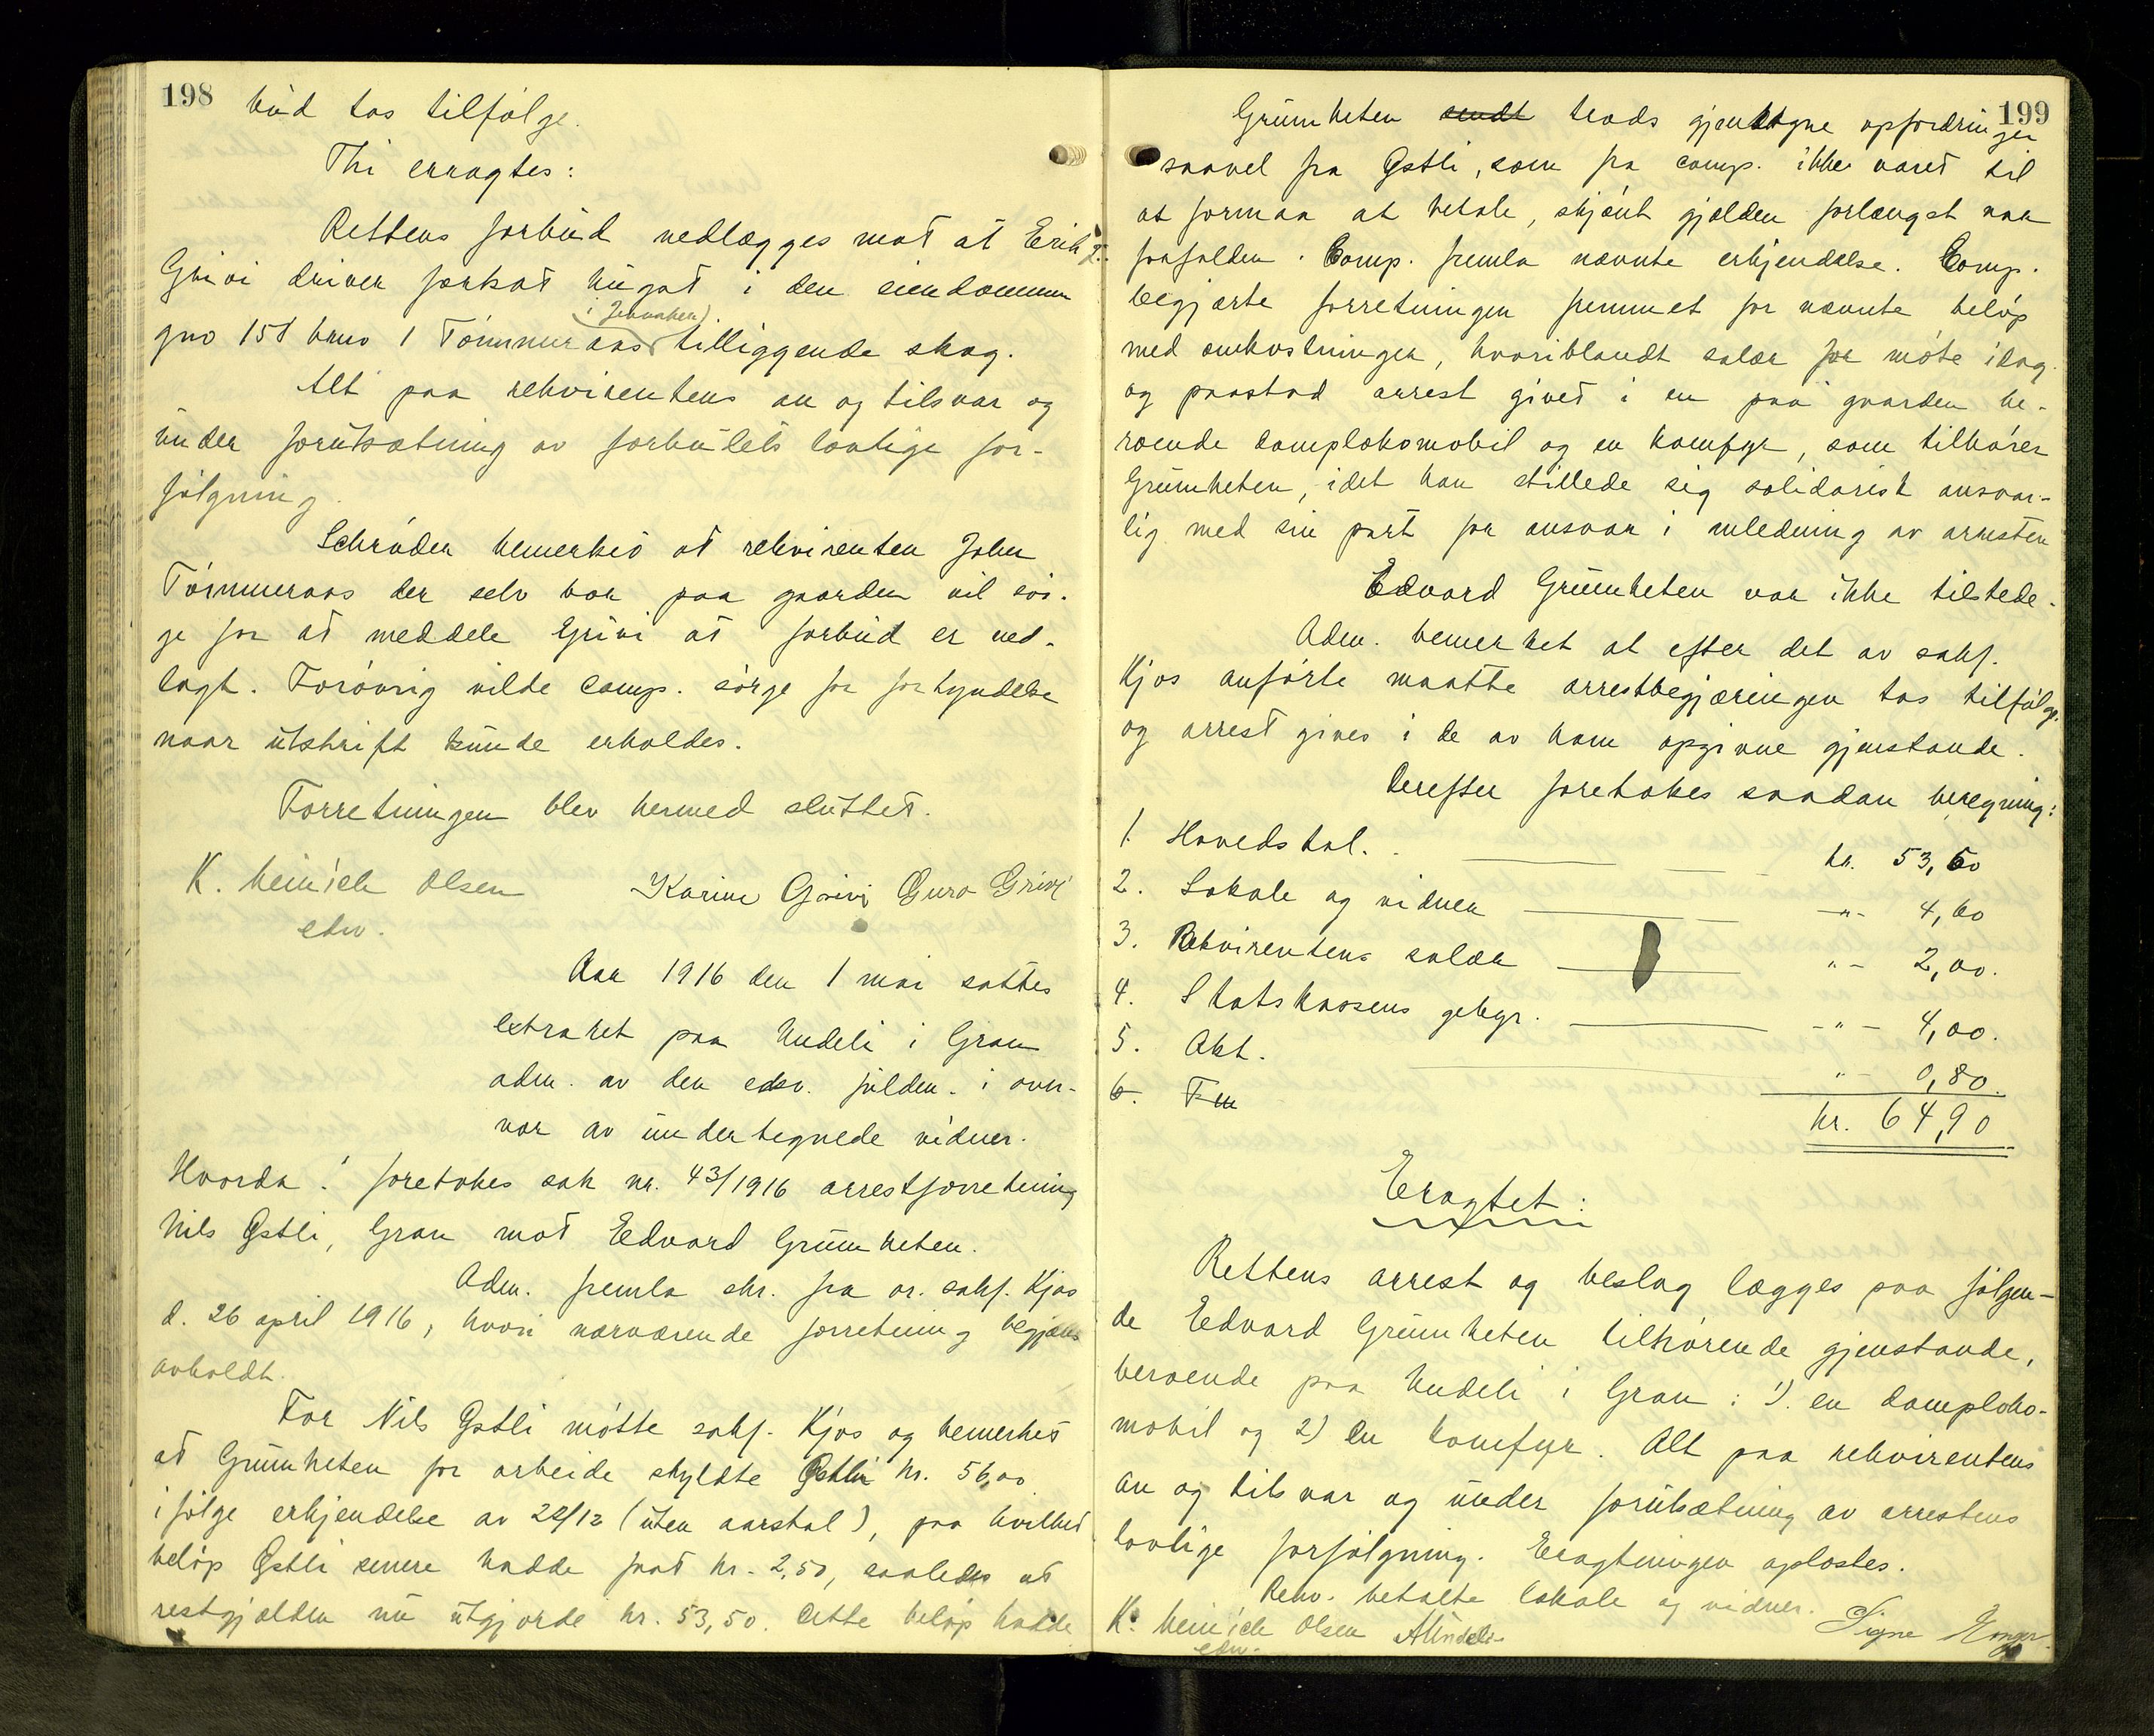 198
bud tas tilfølge.
Thi erragtes:
Rettens forbud nedlægges mot at Erik T.
Grivi driver fortsat hugst i den eiendommen
(i Jevnaker)
gno 151 bruno 1 Tømmeraas tilliggende skog.
Alt paa rekvirentens an og tilsvar og
under forutsætning av forbudets lovlige for-
følgning.
Schrøder bemerket at rekvirenten John
Tømmeraas der selv bor paa gaarden vil sør-
ge for at meddele Grivi at forbud er ned-
lagt. Forøvrig vilde comp. sørge for forkyndelse
naar utskrift kunde erholdes.
Forretningen blev hermed sluttet.
K. Heinrich Olsen Karine Grivi Guro Grivi
edsv.
Aar 1916 den 1 mai sattes
extraret paa Undeli i Gran
adm. av den edsv. fuldm. i over-
vær av undertegnede vidner.
Hvorda: foretokes sak nr. 43/1916 arrestforretning
Nils Østli, Gran mot Edvard Grünheten.
Adm. fremla skr. fra or. sakf. Kjos
d. 26 april 1916, hvori nærværende forretning begjæres
avholdt.
For Nils Østli møtte sakf. Kjos og bemerket
at Grünheten for arbeide skyldte Østli kr. 56,00
ifølge erkjendelse av 22/12 (uten aarstal), paa hvilket
beløp Østli senere hadde faat kr. 2,50, saaledes at
restgjælden nu utgjorde kr. 53,50. Dette beløp hadde
199
Grünheten sendt trods gjentagne opfordringer
saavel fra Østli, som fra comp. ikke været til
at formaa at betale, skjønt gjælden forlængst var
forfalden. Comp. fremla nævnte erkjendelse. Comp.
begjærte forretningen fremmet for nævnte beløp
med omkostninger, hvoriblandt salær for møte idag
og paastod arrest givet i en paa gaarden be-
roende damplokomobil og en komfyr, som tilhører
Grünheten, idet han stillede sig solidarisk ansvar-
lig med sin part for ansvar i anledning av arresten
Edvard Grünheten var ikke tilstede.
Adm. bemerket at efter det av sakf.
Kjos anførte maatte arrestbegjæringen tas tilfølge
og arrest gives i de av ham opgivne gjenstande.
Derefter foretokes saadan beregning:
1. Hovedstol. kr. 53,50
2. Lokale og vidner -"- 4,60
3. Rekvirentens salær "- 2,00.
4. Statskassens gebyr. -"- 4,00.
5. Akt. "- 0,80.
6. Fm
kr. 64,90
Eragtet:
Rettens arrest og beslag lægges paa følgen-
de Edvard Grünheten tilhørende gjenstande,
beroende paa Undeli i Gran: 1). en damploko-
mobil og 2) En komfyr. Alt paa rekvirentens
an og tilsvar og under forutsætning av arrestens
lovlige forfølgning. Eragtningen oplæstes.
Rekv. betalte lokale og vidner.
K. Heinrich Olsen AUndeli Signe
edsv.